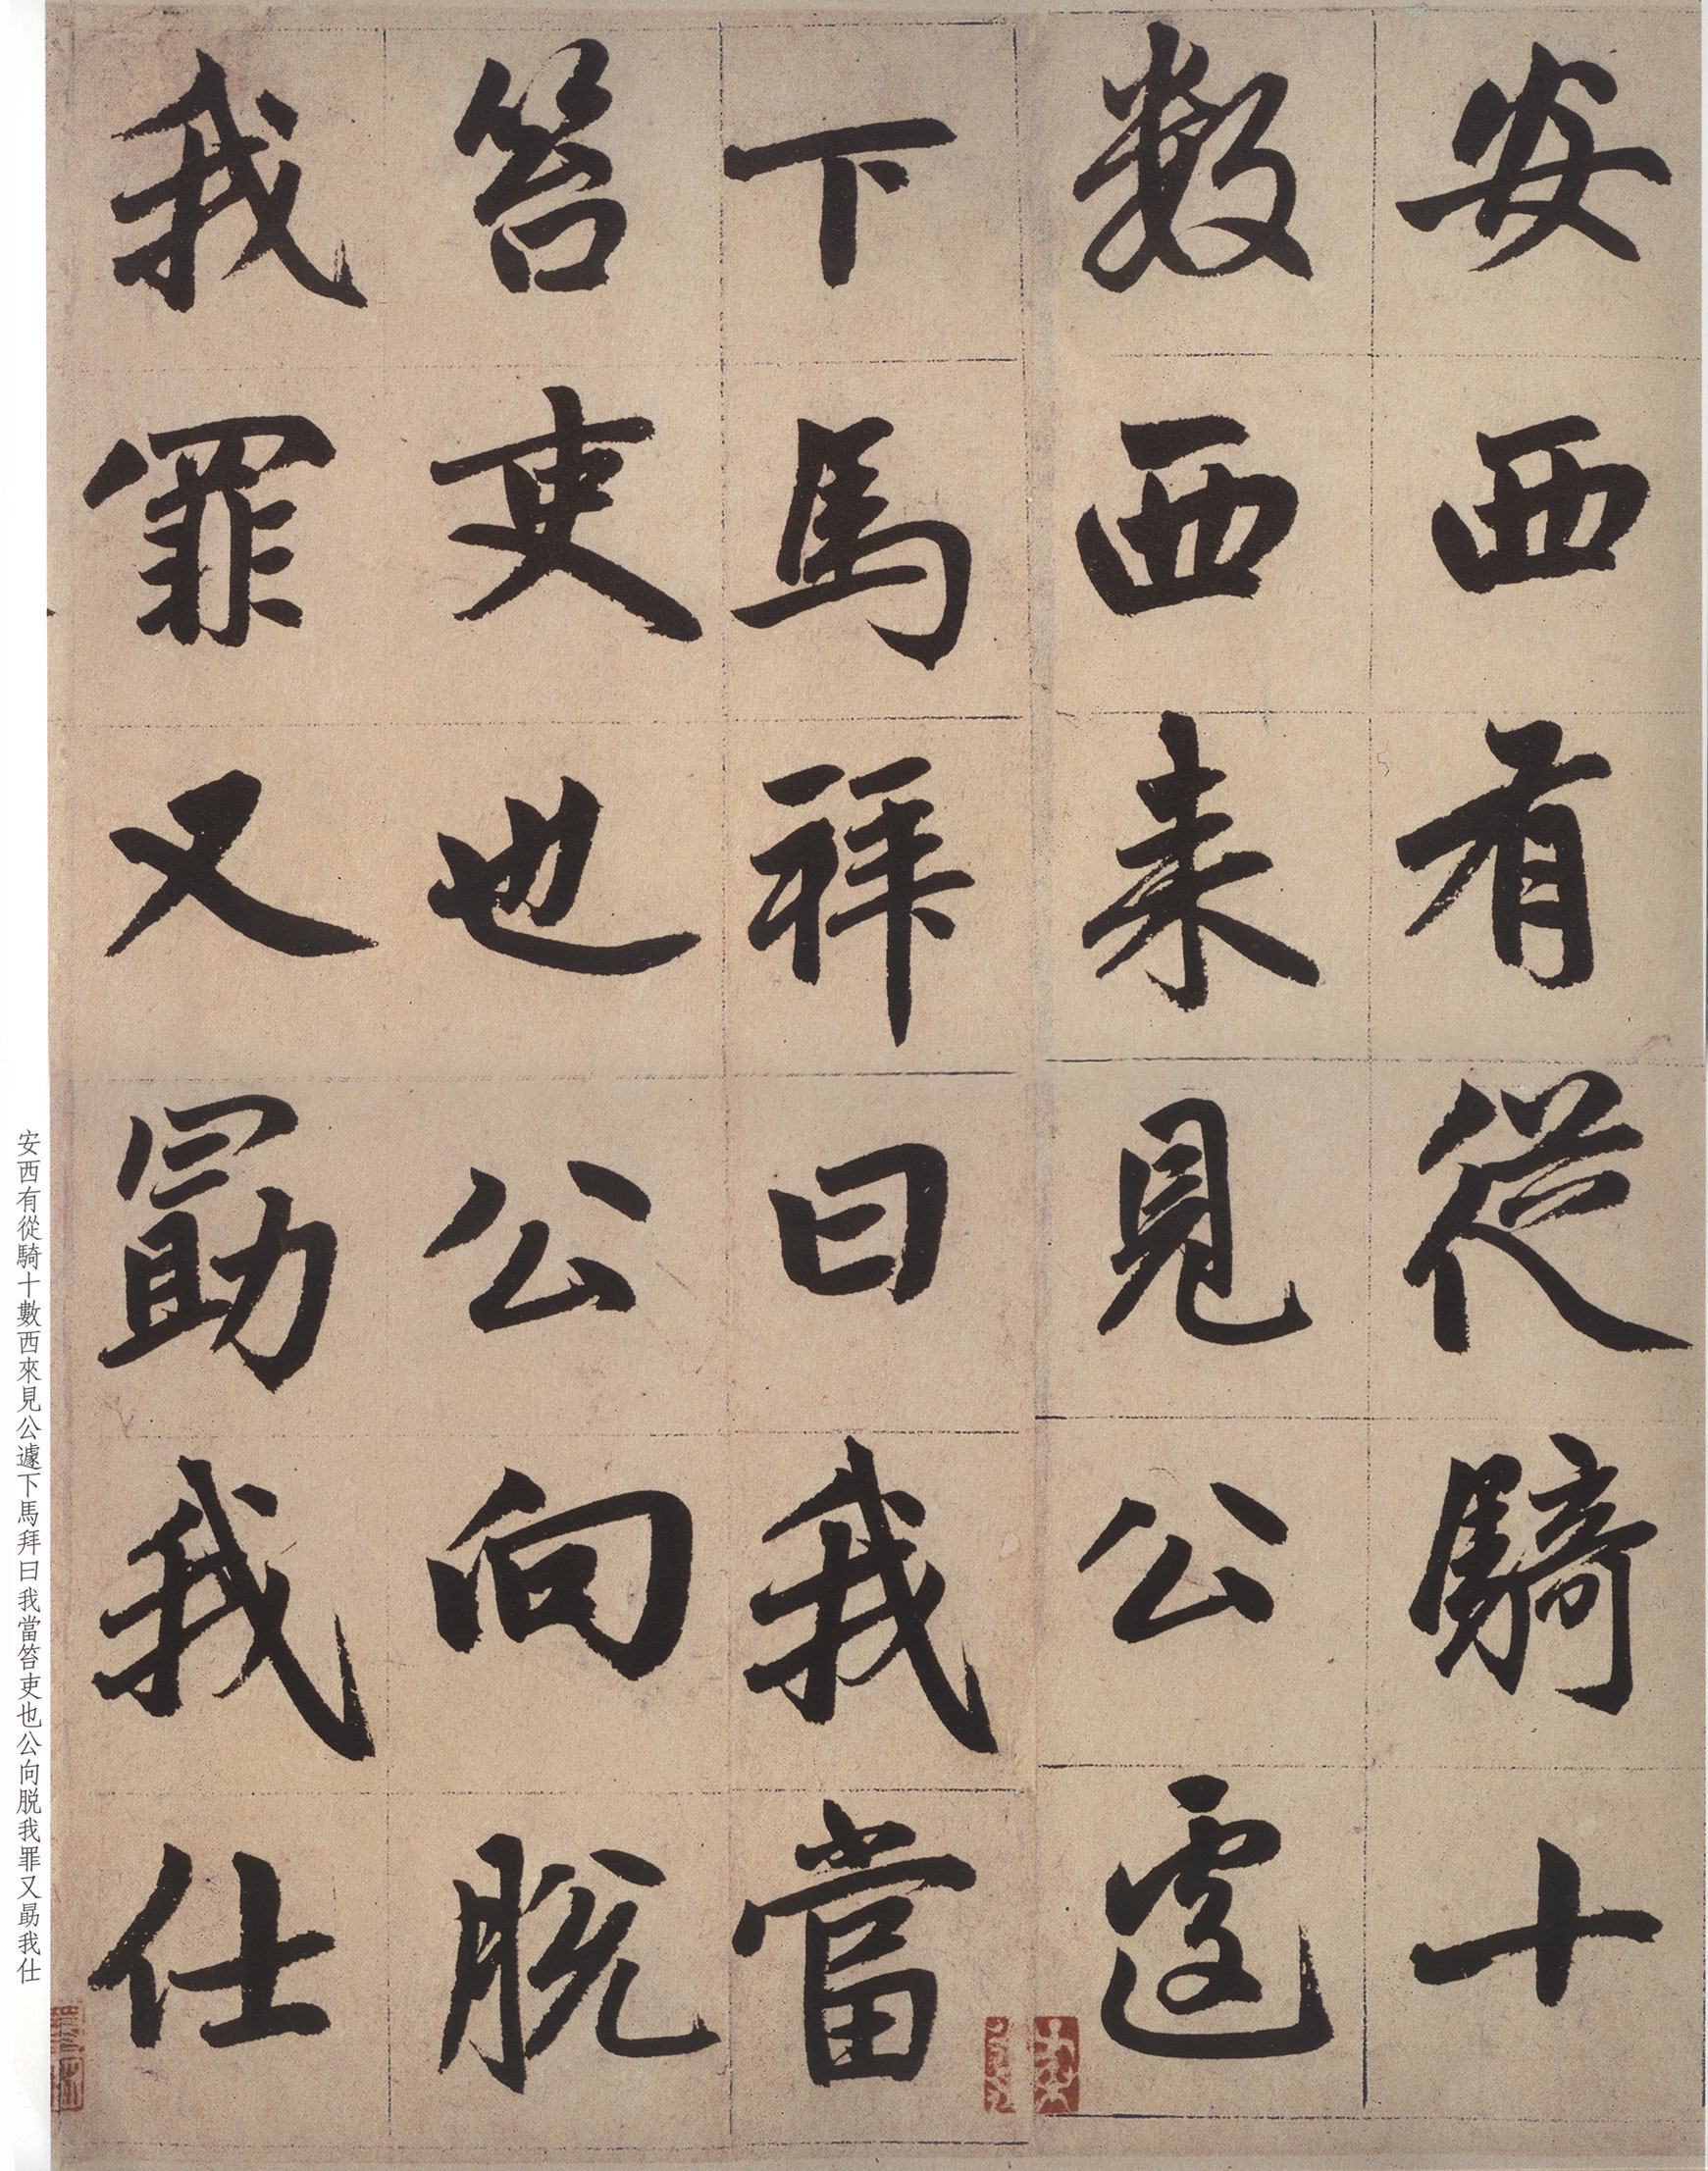 安西有從騎十
數西来見公遽
下馬拜曰我當
笞吏也公向脫
我罪又勗我仕
安西有從騎十數西來見公遽下馬拜曰我當笞吏也公向脱我罪又勗我仕